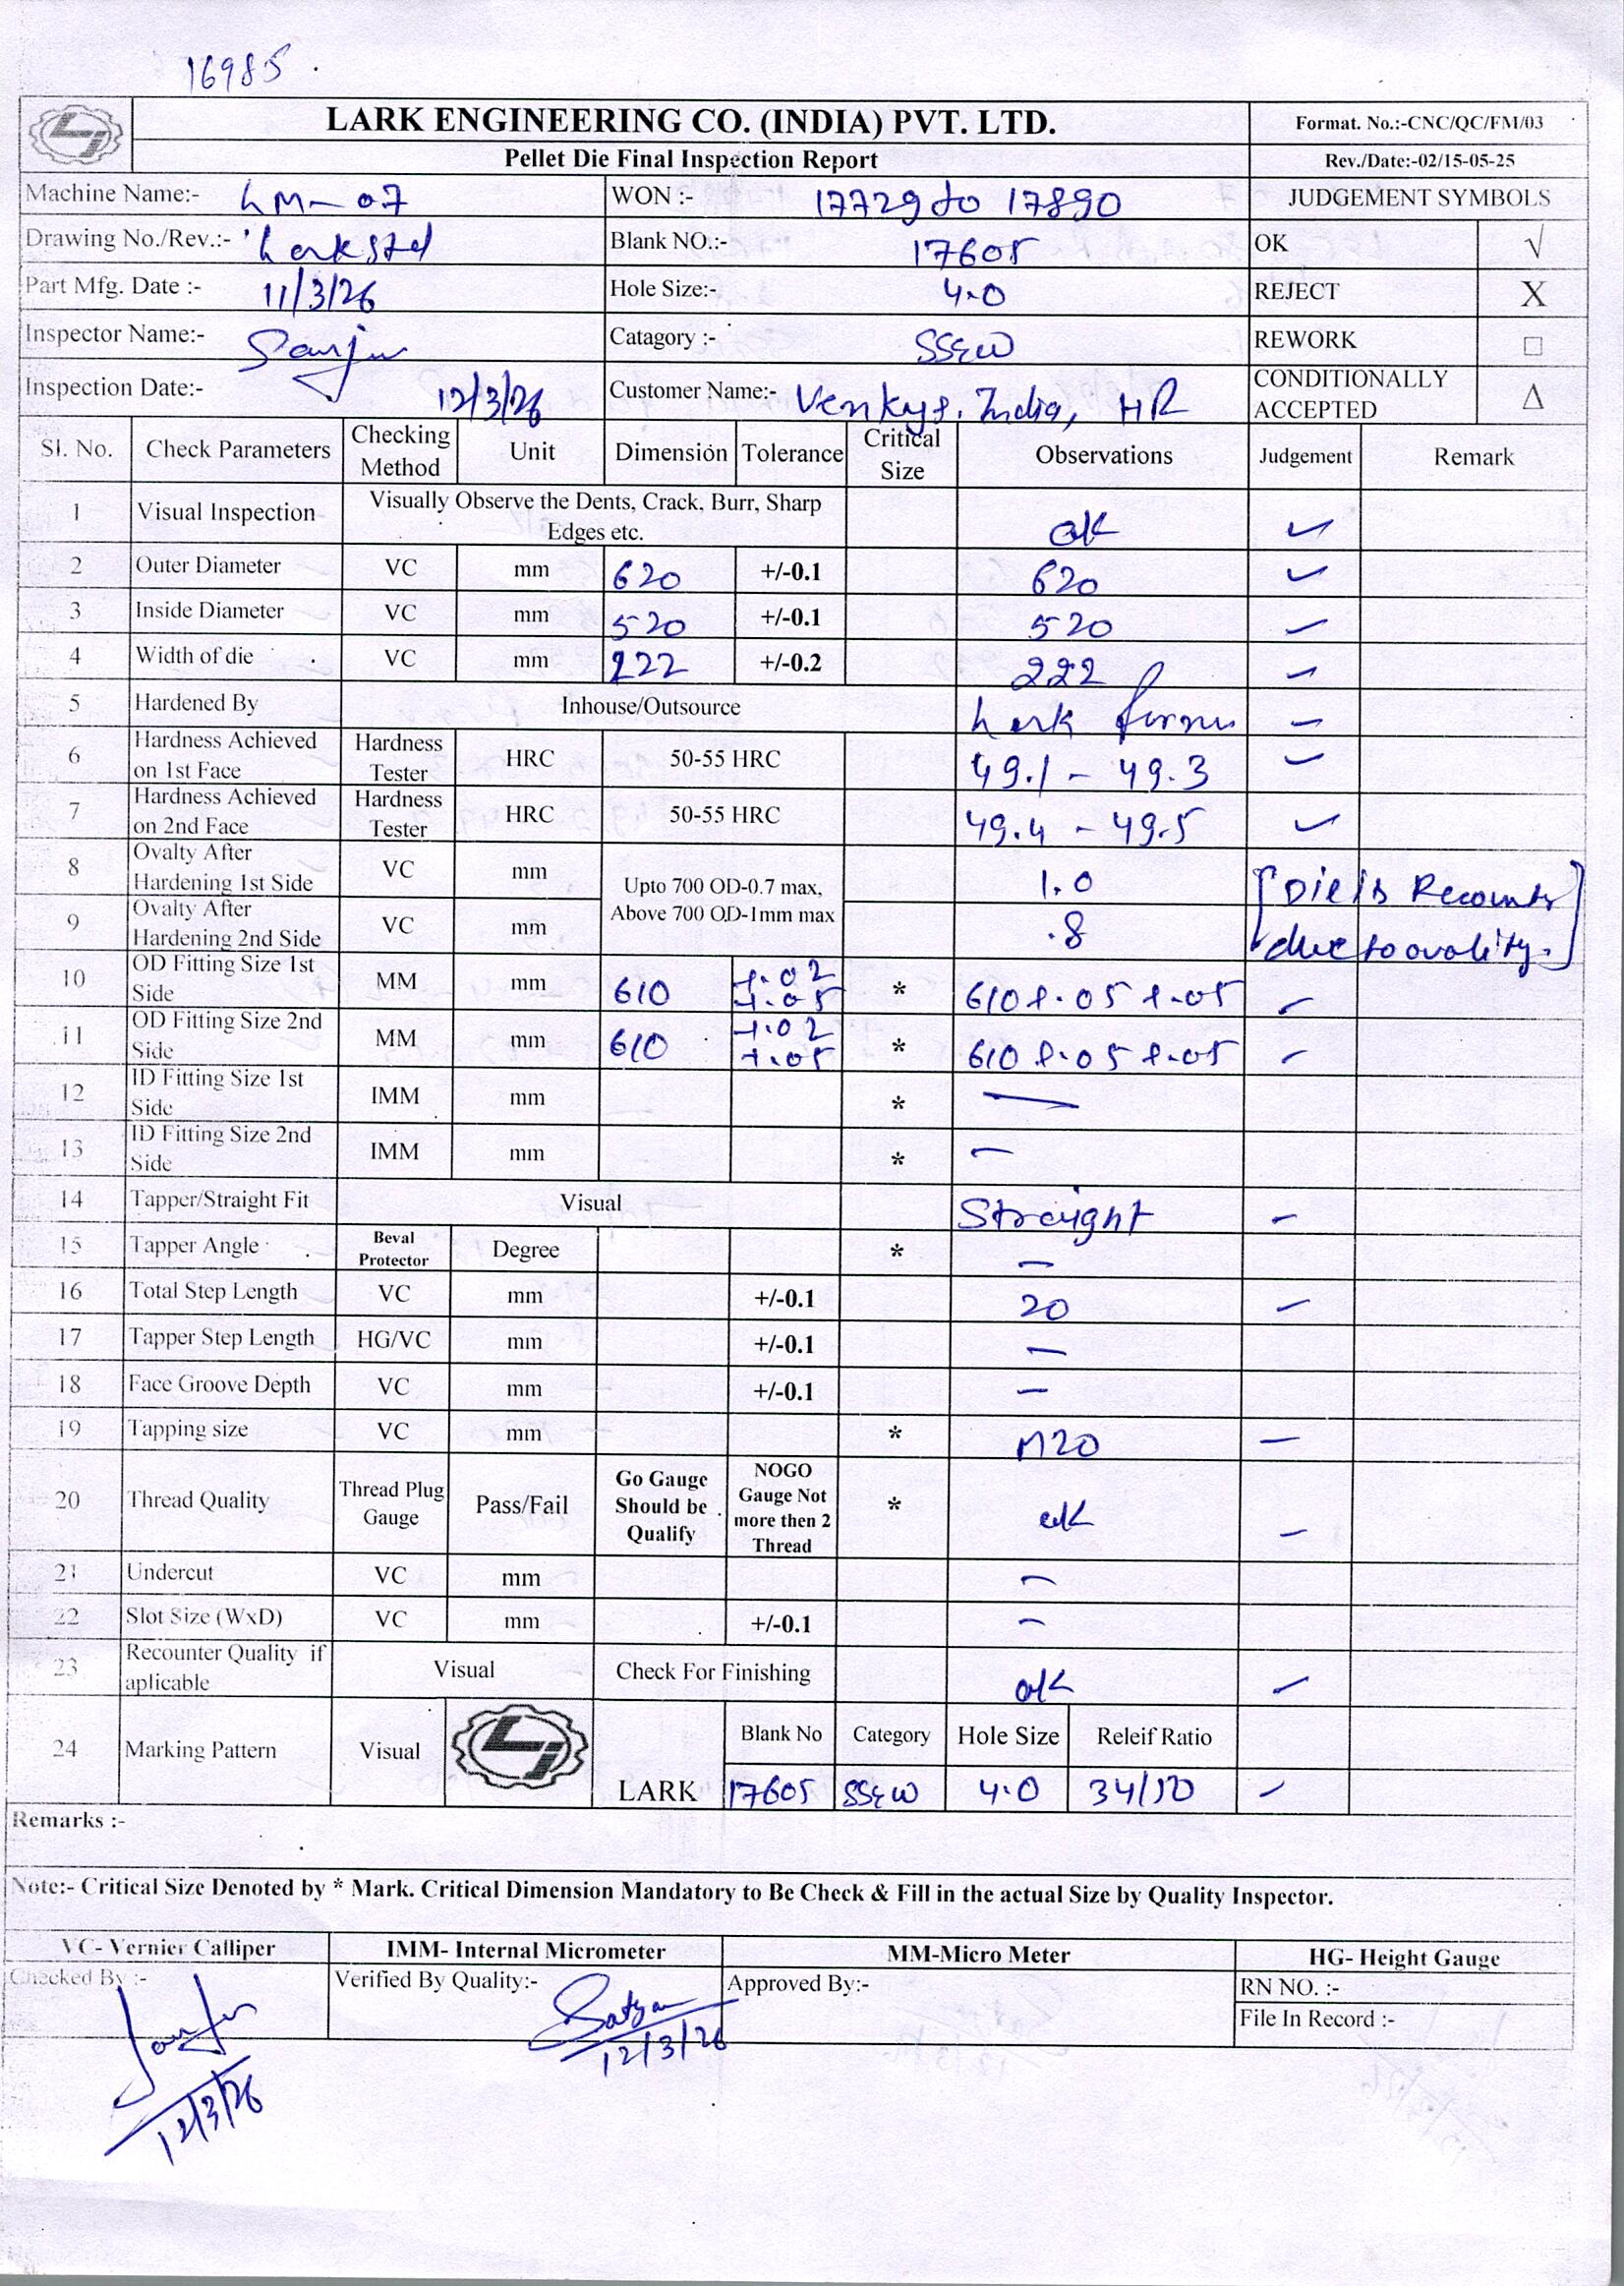 16985
LARK ENGINEERING CO. (INDIA) PVT. LTD. Format. No.:-CNC/QC/FM/03
Pellet Die Final Inspection Report Rev./Date:-02/15-05-25
Machine Name:- LM-07 WON :- 17729 to 17890 JUDGEMENT SYMBOLS
Drawing No./Rev.:- Lark Std Blank NO.:- 17605 OK √
Part Mfg. Date :- 11/3/26 Hole Size:- 4.0 REJECT X
Inspector Name:- Sanju Catagory :- SS&W REWORK □
Inspection Date:- 12/3/26 Customer Name:- Venkys, India, HR CONDITIONALLY ACCEPTED Δ
Sl. No. Check Parameters Checking Method Unit Dimension Tolerance Critical Size Observations Judgement Remark
1 Visual Inspection Visually Observe the Dents, Crack, Burr, Sharp Edges etc. ok ✓
2 Outer Diameter VC mm 620 +/-0.1 620 ✓
3 Inside Diameter VC mm 520 +/-0.1 520 ✓
4 Width of die VC mm 222 +/-0.2 222 ✓
5 Hardened By Inhouse/Outsource Lark ✓
6 Hardness Achieved on 1st Face Hardness Tester HRC 50-55 HRC 49.1 - 49.3 ✓
7 Hardness Achieved on 2nd Face Hardness Tester HRC 50-55 HRC 49.4 - 49.5 ✓
8 Ovalty After Hardening 1st Side VC mm Upto 700 OD-0.7 max, Above 700 OD-1mm max 1.0 [Die is Recounter
9 Ovalty After Hardening 2nd Side VC mm .8 due to ovality.]
10 OD Fitting Size 1st Side MM mm 610 +.02 +.05 * 610 +.05 +.05 ✓
11 OD Fitting Size 2nd Side MM mm 610 +.02 +.05 * 610 +.05 +.05 ✓
12 ID Fitting Size 1st Side IMM mm * —
13 ID Fitting Size 2nd Side IMM mm * —
14 Tapper/Straight Fit Visual Straight ✓
15 Tapper Angle Beval Protector Degree * —
16 Total Step Length VC mm +/-0.1 20 ✓
17 Tapper Step Length HG/VC mm +/-0.1 —
18 Face Groove Depth VC mm +/-0.1 —
19 Tapping size VC mm * M20 ✓
20 Thread Quality Thread Plug Gauge Pass/Fail Go Gauge Should be Qualify NOGO Gauge Not more then 2 Thread * ok ✓
21 Undercut VC mm —
22 Slot Size (WxD) VC mm +/-0.1 —
23 Recounter Quality if aplicable Visual Check For Finishing ok ✓
24 Marking Pattern Visual LARK Blank No Category Hole Size Releif Ratio
17605 SS&W 4.0 34/50 ✓
Remarks :-
Note:- Critical Size Denoted by * Mark. Critical Dimension Mandatory to Be Check & Fill in the actual Size by Quality Inspector.
VC- Vernier Calliper IMM- Internal Micrometer MM-Micro Meter HG- Height Gauge
Checked By :- Verified By Quality:- Approved By:- RN NO. :-
File In Record :-
Sanju Satya
12/3/26 12/3/26